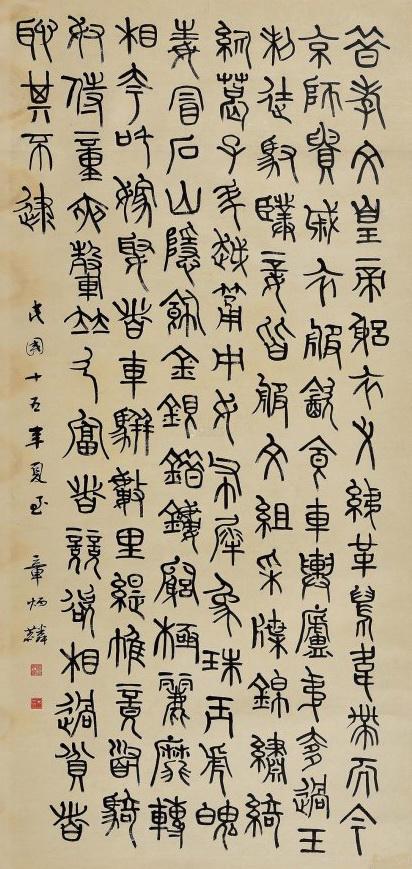 昔孝文皇帝躬衣弋綈革舄韋帶而今
京師貴戚衣服飲食車輿廬弟奢過王
制徒馭僕妾皆服文組采牒錦繡綺
紈葛子升越筩中女布犀象珠玉虎魄
毒冒石山隱飾金銀錯鏤窮極麗靡轉
相夸吒嫁娶者車駢數里緹帷竟道騎
奴侍童夾轂並引富者競欲相過貧者
恥其不逮
民國十五年夏至 章炳麟